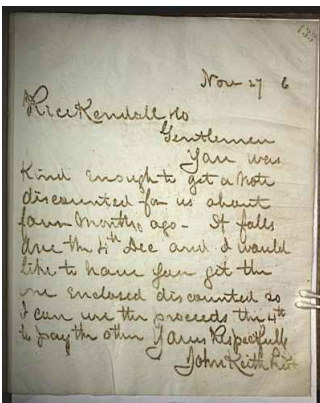 Nov 27 6
Rice Kendall & Co
Gentlemen
You was
Kind enough to get a note
discounted for us about
four months ago - It falls
due the 4th Dec and I would
like to have you get the
one enclosed discounted so
I can use the proceeds the 4th
to pay the other Yours Respectfully
John Keith